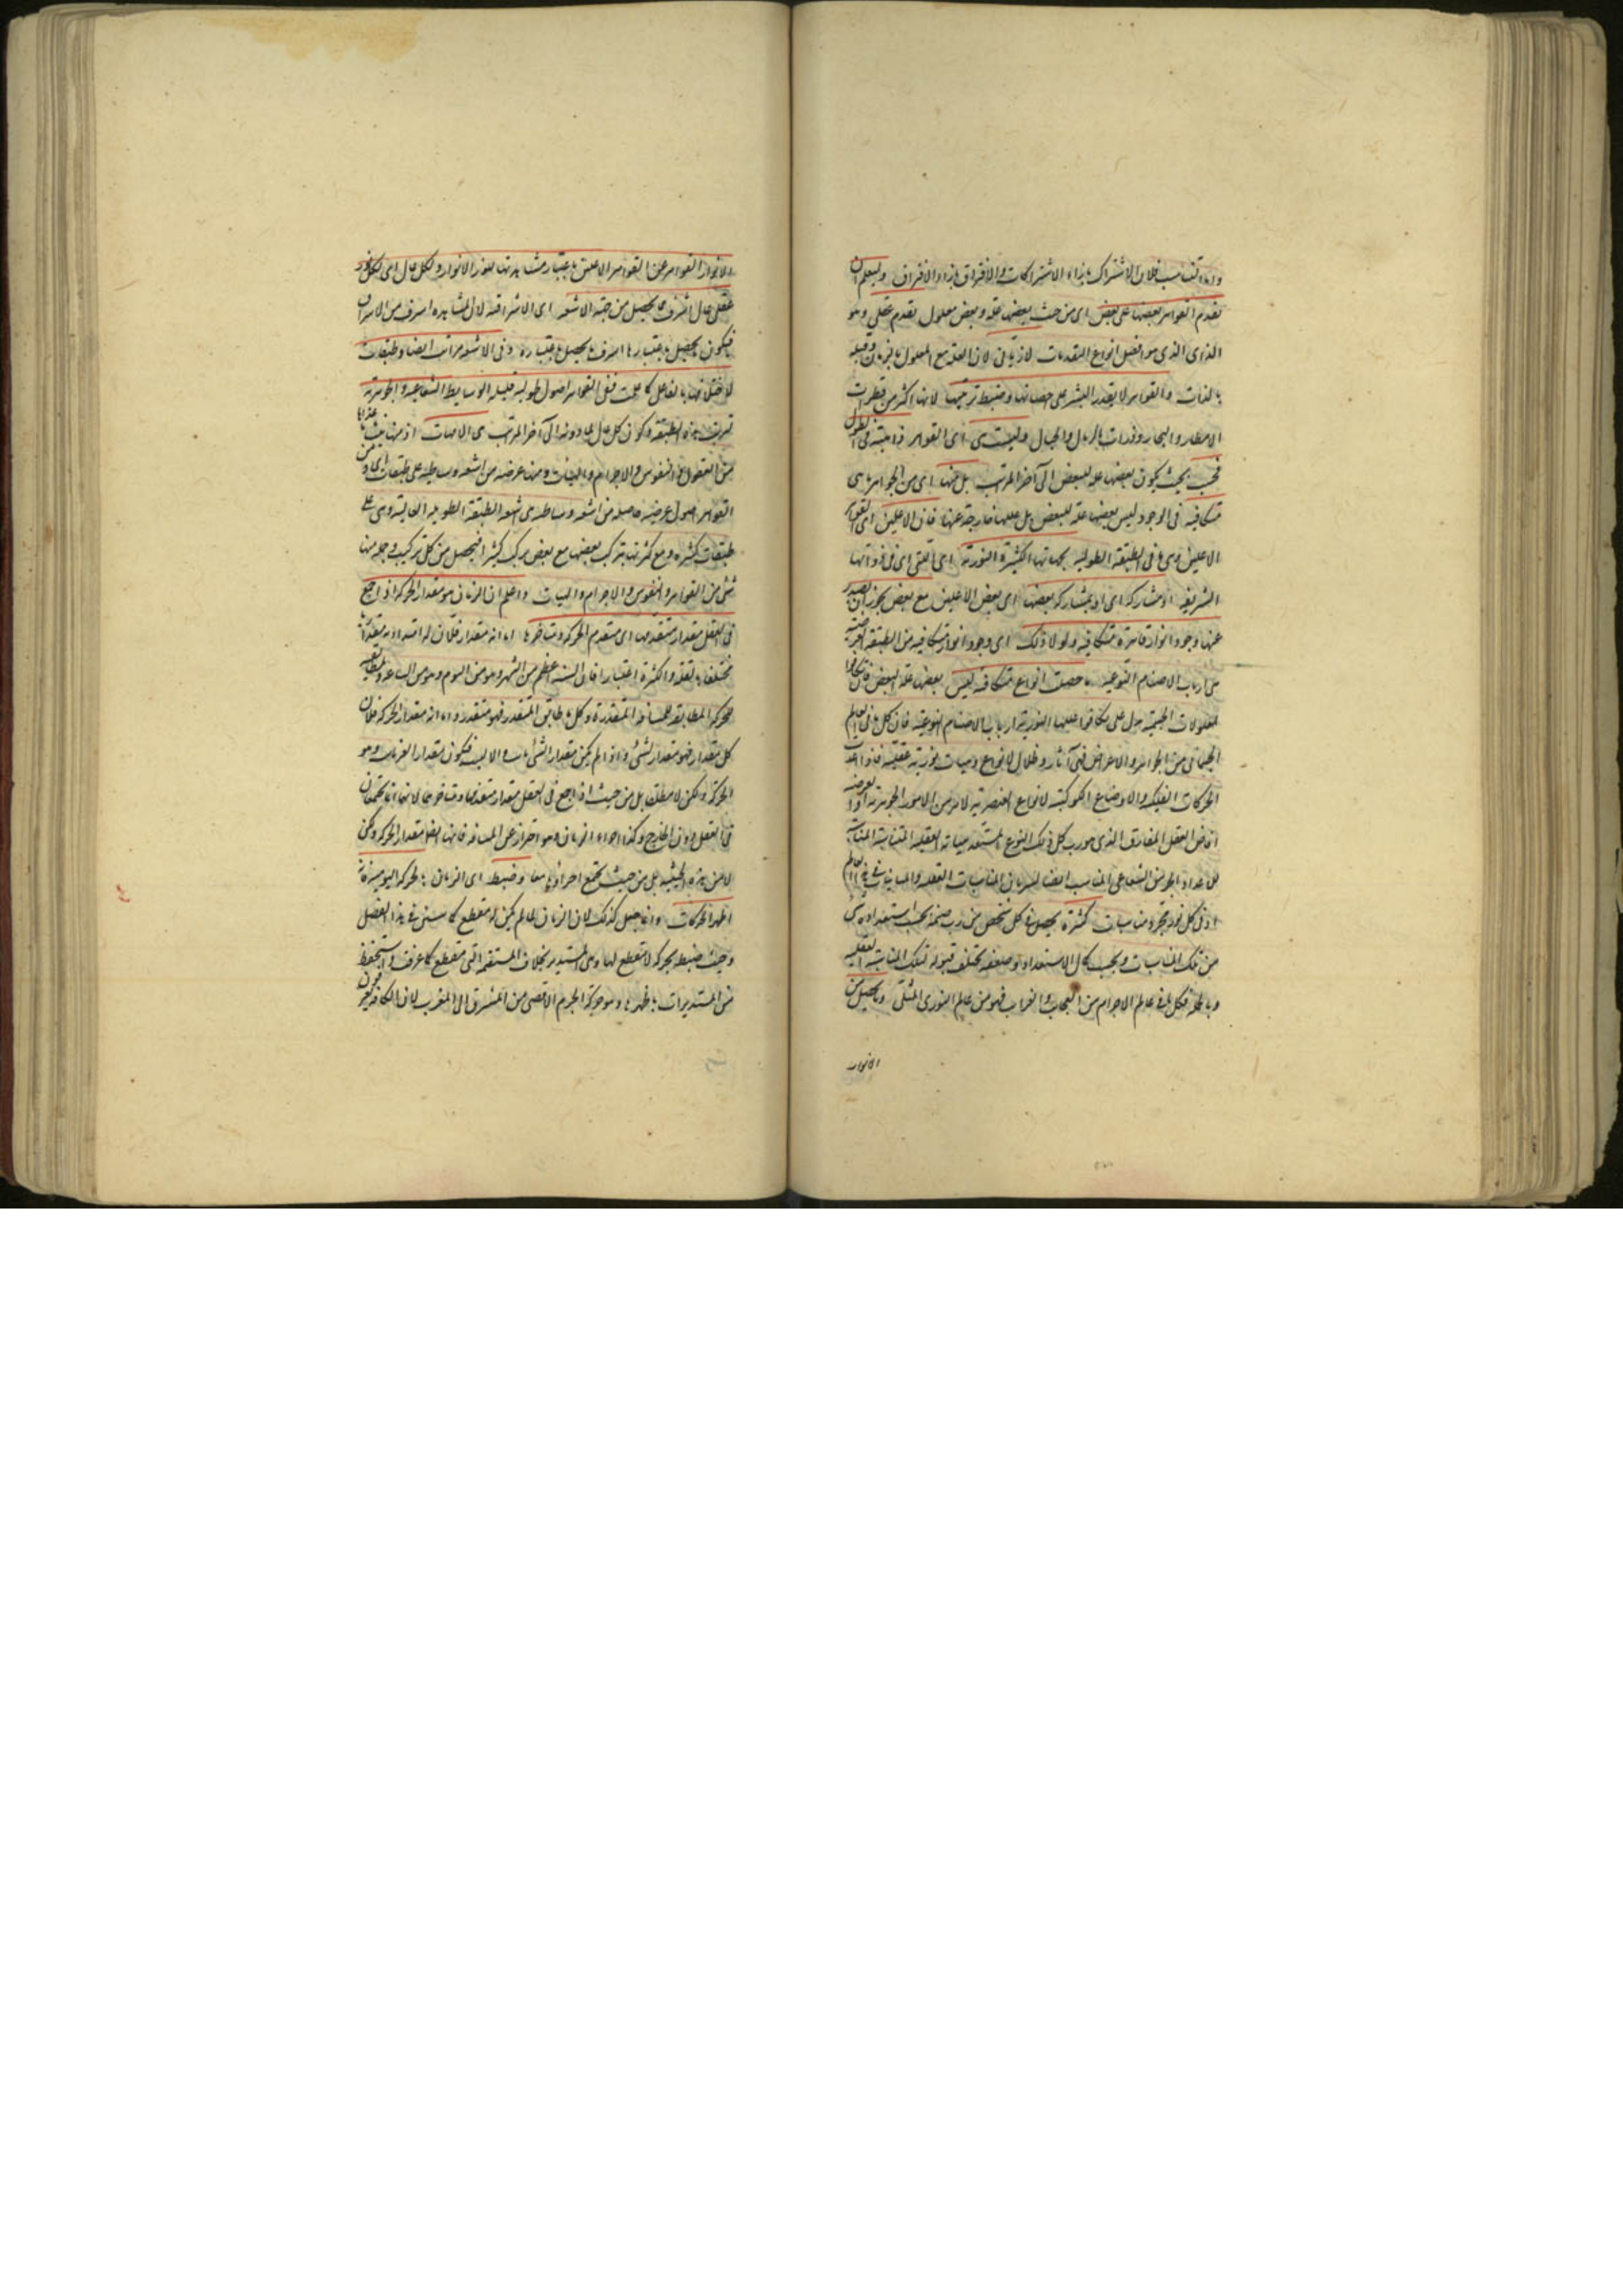 واما تناسب فلان الاشتراك بازاء الاشتراكات والافتراق بازاء الافتراق وليعلم ان
تقدم القواهر بعضها على بعض اى من حيث بعضها علة وبعض معلول تقدم عقلى وهو
الذاتى الذى هو افضل انواع التقدمات لا زمانى لان العلة مع المعلول بالزمان وقبله
بالذات والقواهر لا يقدر البشر على احصائها وضبط ترتيبها لانها اكثر من قطرات
الامطار والبحار وذرات الرمال والجبال وليست هى اى القواهر ذاهبة فى الطول
فحسب بحيث يكون بعضها علة للبعض الى آخر المراتب بل منها اى من الجواهر ما هى
متكافية فى الوجود ليس بعضها علة للبعض بل عللها خارجة عنها فان الاعلين اى القواهر
الاعلين وهى ما فى الطبقة الطولية بجهاتها الكثيرة النورية اى التى فى ذواتها
الشريفة او مشاركة اى او بمشاركة بعضها اى بعض الاعلين مع بعض يجوز ان يصدر
عنها وجود انوار قاهرة متكافية ولولا ذلك اى وجود انوار متكافية من الطبقة العرضية
من ارباب الاصنام النوعية ما حصلت انواع متكافية ليس بعضها علة للبعض فان تكافؤ
المعلولات الجسمية يدل على تكافؤ عللها النورية ارباب الاصنام النوعية فان كل ما فى العالم
الجسمانى من الجواهر والاعراض فهى آثار وظلال لانواع وهيات نورية عقلية فاذا اعدت
الحركات الفلكية والاوضاع الكوكبية لانواع العنصرية لامر من الامور الجوهرية او العرضية
افاض العقل المفارق الذى هو رب كل ذلك النوع المستعد هياته العقلية المتناسبة المناسبة
للاعداد الجرمى الشعاعى المناسب ايضا لسريان المناسبات العقلية والمباينات فى هذا العالم
اذ فى كل نور مجرد مناسبات كثيرة يحصل فى كل شخص من رب صنمه بحسب استعداده شئ
من تلك المناسبات وبحسب كمال الاستعداد وضعفه يختلف قبوله لتلك المناسبة العقلية
وبالجملة فكل ما فى عالم الاجرام من العجايب والغرايب فهو من عالم النورى المثلى وما يحصل من
الانوار
الانوار القواهر عن القواهر الاعلين باعتبار مشاهدتها لنور الانوار ولكل عال اى لكل نور
عقلى عال اشرف مما يحصل من جهة الاشعة اى الاشراقية لان المشاهدة اشرف من الاشراق
فيكون ما يحصل باعتبارها اشرف مما يحصل باعتباره وفى الاشعة مراتب ايضا وطبقات
لاختلافها بالفاعل كما علمت ففى القواهر اصول طولية قليلة الوسايط الشعاعية والجوهرية
لقرب هذه الطبقة وكون كل عال لما دونه الى آخر المراتب هى الامهات اذ منها ينشأ ما عداها
من العقول والنفوس والاجرام والهيئات ومنها عرضية من اشعة وساطية على طبقات اى ومن
القواهر اصول عرضية حاصلة من اشعة وساطية هى اشعة الطبقة الطولية العالية وهى على
طبقات كثيرة ومع كثرتها يتركب بعضها مع بعض تركيبا كثيرا فيحصل من كل تركيب وجملة منها
شئ من القواهر والنفوس والاجرام والهيات واعلم ان الزمان هو مقدار الحركة اذا جمع
فى العقل مقدار متقدمها اى متقدم الحركة ومتاخرها اما انه مقدار فلان له امتدادا متقدرا
مختلفا بالقلة والكثرة اعتبارا فان السنة اعظم من الشهر وهو من اليوم وهو من الساعة ولمطابقته
للحركة المطابقة للمسافة المتقدرة وكل ما طابق المتقدر فهو متقدر واما انه مقدار الحركة فلان
كل مقدار فهو مقدار لشئ واذا لم يكن مقدار الشئ ثابت والا ليثبت فيكون مقدارا لغير ثابت وهو
الحركة ولكن لا مطلقا بل من حيث اذا جمع فى العقل مقدار متقدمها ومتاخرها لانهما انما يجتمعان
فى العقل دون الخارج وكذا اجزاء الزمان وهو احتراز عن المسافة فانها ايضا مقدار الحركة ولكن
لا من هذه الحيثية بل من حيث تجتمع اجزاؤها معا وضبط اى الزمان بالحركة اليومية فانها
اظهر الحركات وانما جعل كذلك لان الزمان لما لم يكن له مقطع كما سنبين فى هذا الفصل
وجب ضبطه بحركة لا مقطع لها وهى المستديرة بخلاف المستقيمة التى مقطع كما عرفت واستحفظ
من المستديرات باظهرها وهو حركة الجرم الاقصى من المشرق الى المغرب لان الكافة يعرفون